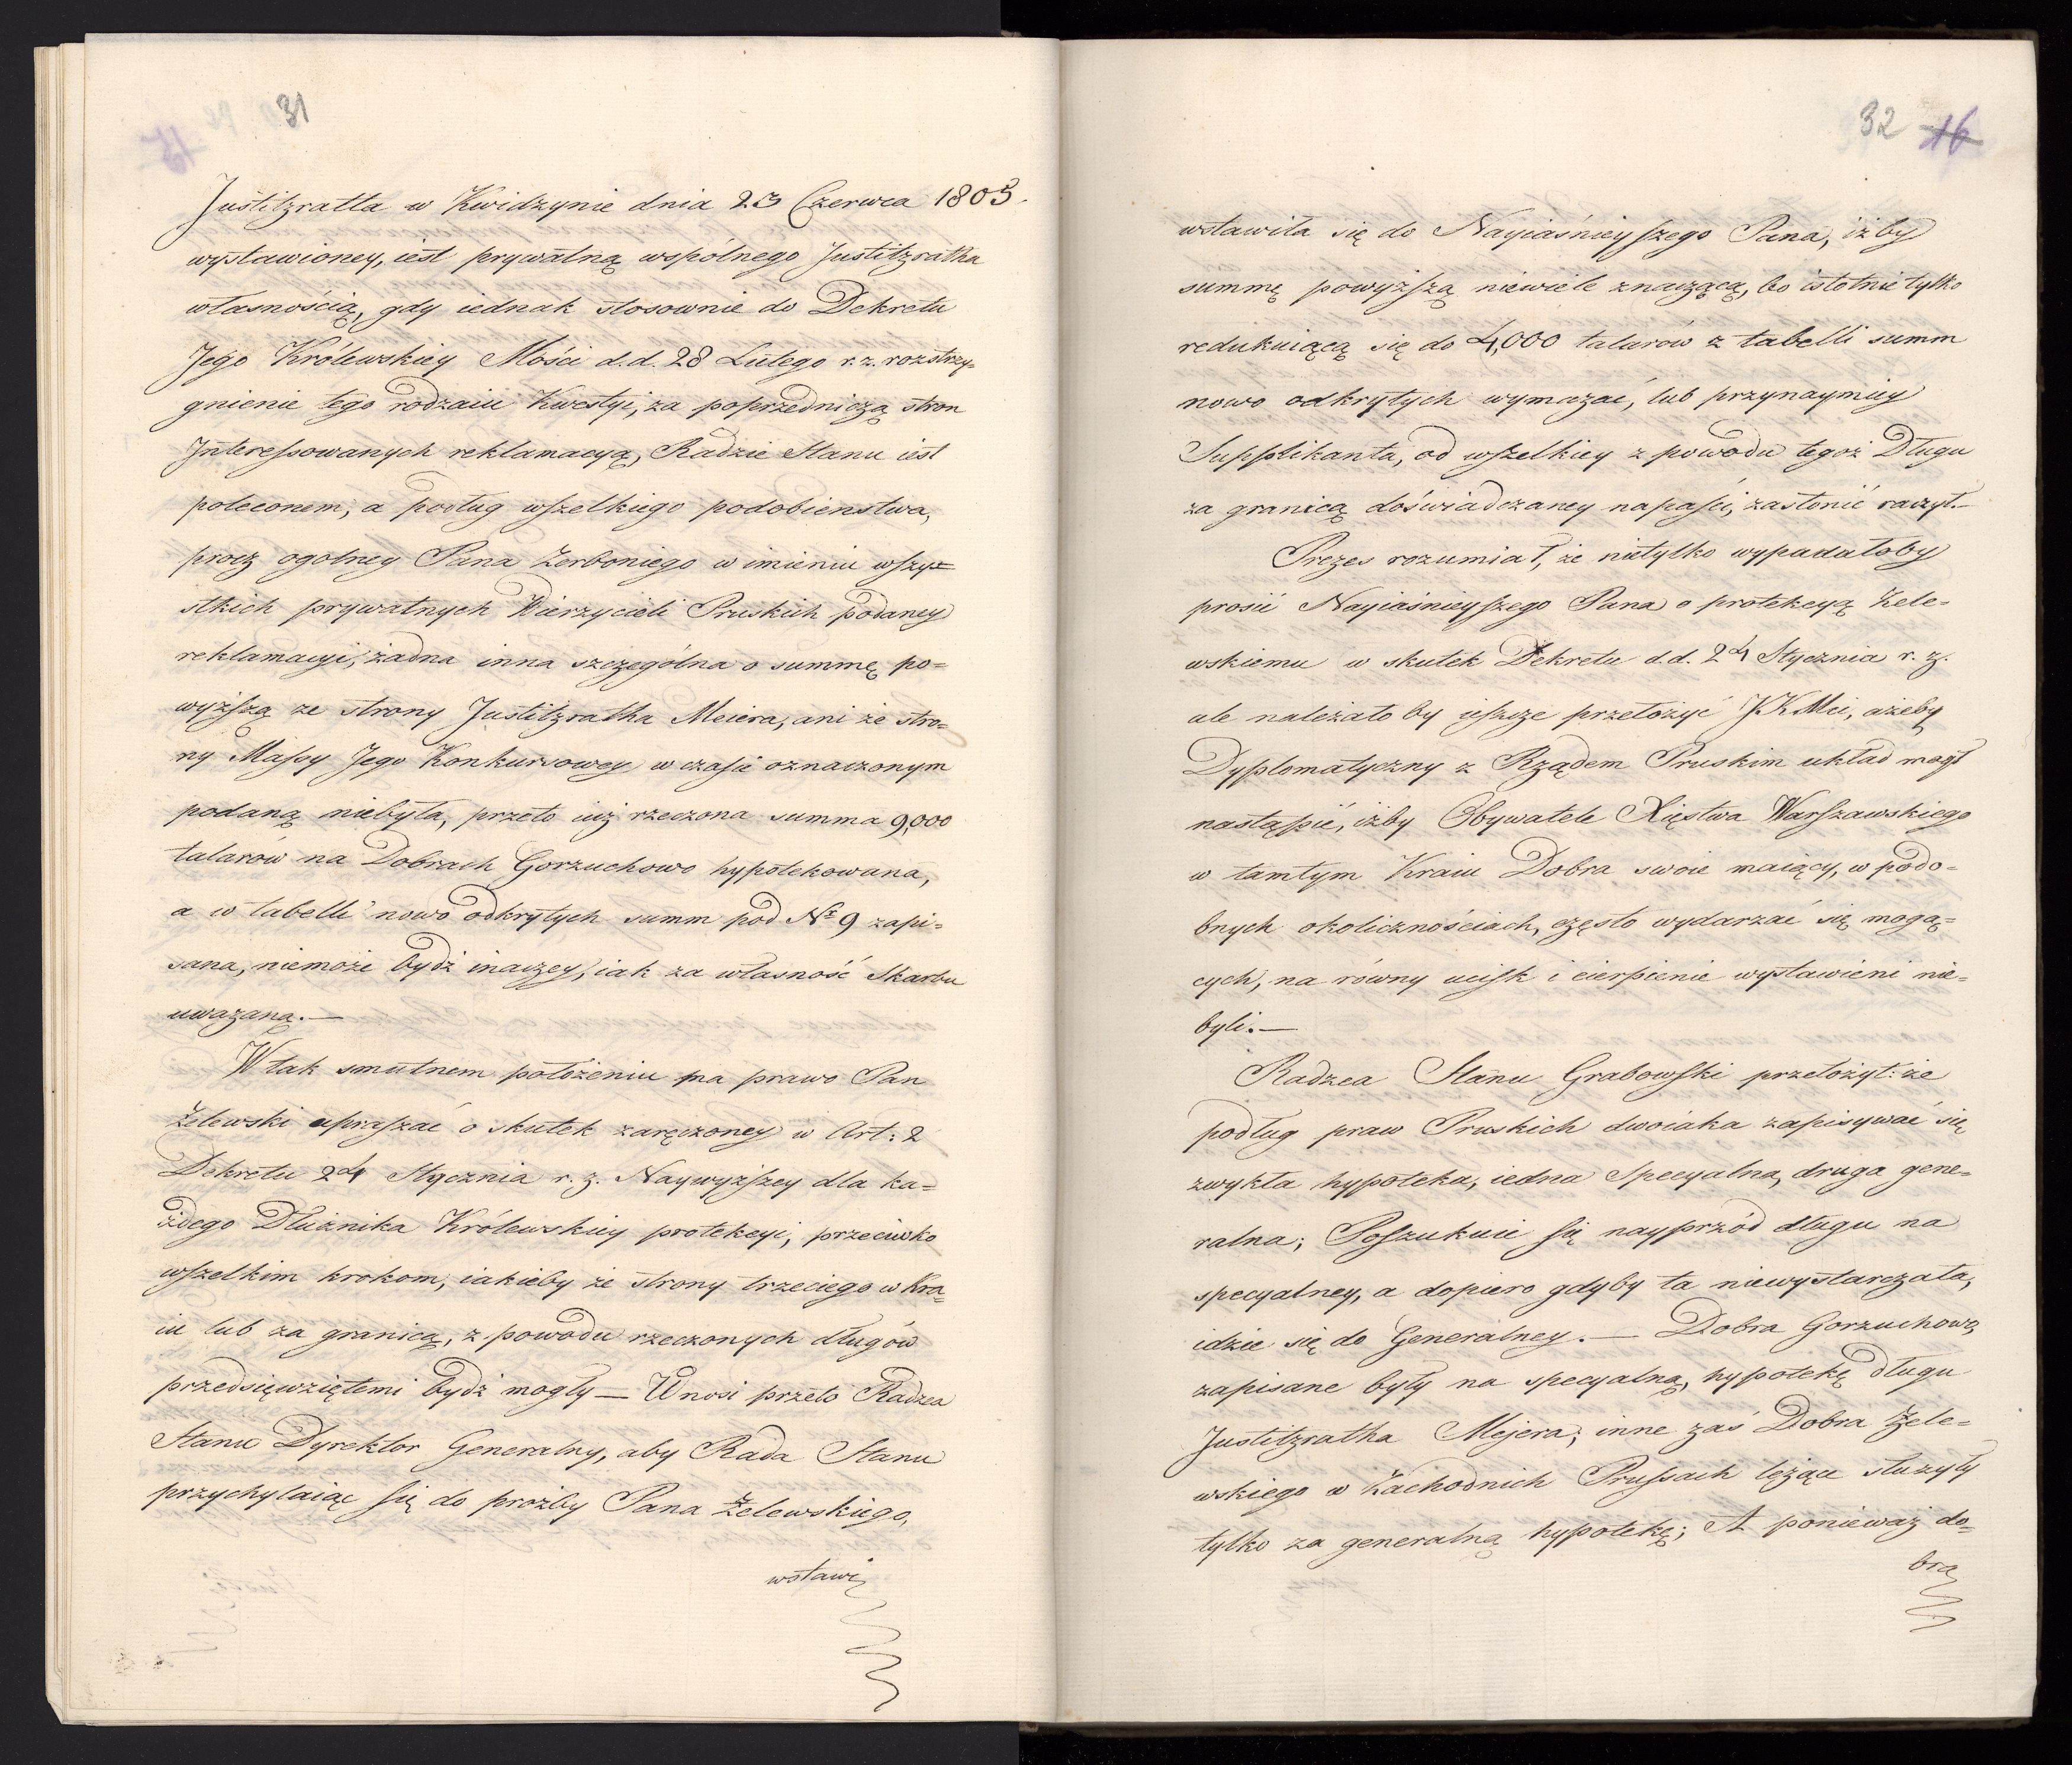 31
Justitzratta w Kwidzynie dnia 23 Czerwca 1805.
wystawioney, iest prywatną wspólnego Justitzratha
własnością, gdy iednak stosownie do Dekretu
Jego Królewskiey Mości d.d. 28 Lutego r. z. rozstrzy=
gnienie tego rodzaiu Kwestyi, za poprzedniczą stron
Interessowanych reklamacyą, Radzie Stanu iest
poleconem, a podług wszelkiego podobienstwa,
procz ogolney Pana Zerboniego w imieniu wszy=
stkich prywatnych Wierzycieli Pruskich podaney
reklamacyi, żadna inna szczególna o summę po=
wyższą ze strony Justitzratha Meiera, ani ze stro=
ny Massy Jego Konkursowey w czasie oznaczonym
podaną niebyła, przeto iuż rzeczona summa 9,000
talarów na Dobrach Gorzuchowo hypotekowana,
a w tabelli nowo odkrytych summ pod Nr 9 zapi=
sana, niemoże bydź inaczey, iak za własność Skarbu
uważana. —
W tak smutnem położeniu ma prawo Pan
Żelewski upraszać o skutek zaręczoney w Art: 2
Dekretu 24 Stycznia r. z. Naywyższey dla ka=
żdego Dłużnika Królewskiey protekcyi, przeciwko
wszelkim krokom, iakieby ze strony trzeciego w Kra=
iu lub za granicą, z powodu rzeczonych długów
przedsięwziętemi bydź mogły — Wnosi przeto Radzca
Stanu Dyrektor Generalny, aby Rada Stanu
przychylaiąc się do prożby Pana Żelewskiego,
wstawi
32 16
wstawiła się do Nayiaśnieyszego Pana, iżby
summę powyższą niewiele znaczącą, bo istotnie tylko
redukuiącą się do 4,000 talarów z tabelli summ
nowo odkrytych wymazać, lub przynaymniey
Supplikanta, od wszelkiey z powodu tegoż Długu
za granicą doświadczaney napaści, zasłonić raczył. —
Prezes rozumiał, że nietylko wypadałoby
prosić Nayiaśnieyszego Pana o protekcyą Żele=
wskiemu w skutek Dekretu d.d. 24 Stycznia r. z.
ale należałoby ieszcze przełożyć JKMci, ażeby
Dyplomatyczny z Rządem Pruskim układ mogł
nastąpić, iżby Obywatele Xięstwa Warszawskiego
w tamtym Kraiu Dobra swoie maiący, w podo=
bnych okolicznościach, często wydarzać się mogą=
cych, na równy ucisk i cierpienie wystawieni nie=
byli. —
Radzca Stanu Grabowski przełożył: że
podług praw Pruskich dwoiaka zapisywać się
zwykła hypoteka, iedna specyalna, druga gene=
ralna; Poszukuie się nayprzód długu na
specyalney, a dopiero gdyby ta niewystarczała,
idzie się do Generalney. — Dobra Gorzuchowo,
zapisane były na specyalną hypotekę długu
Justitzratha Mejera, inne zaś Dobra Żele=
wskiego w Zachodnich Prussach leżące służyły
tylko za generalną hypotekę; A ponieważ do=
bra